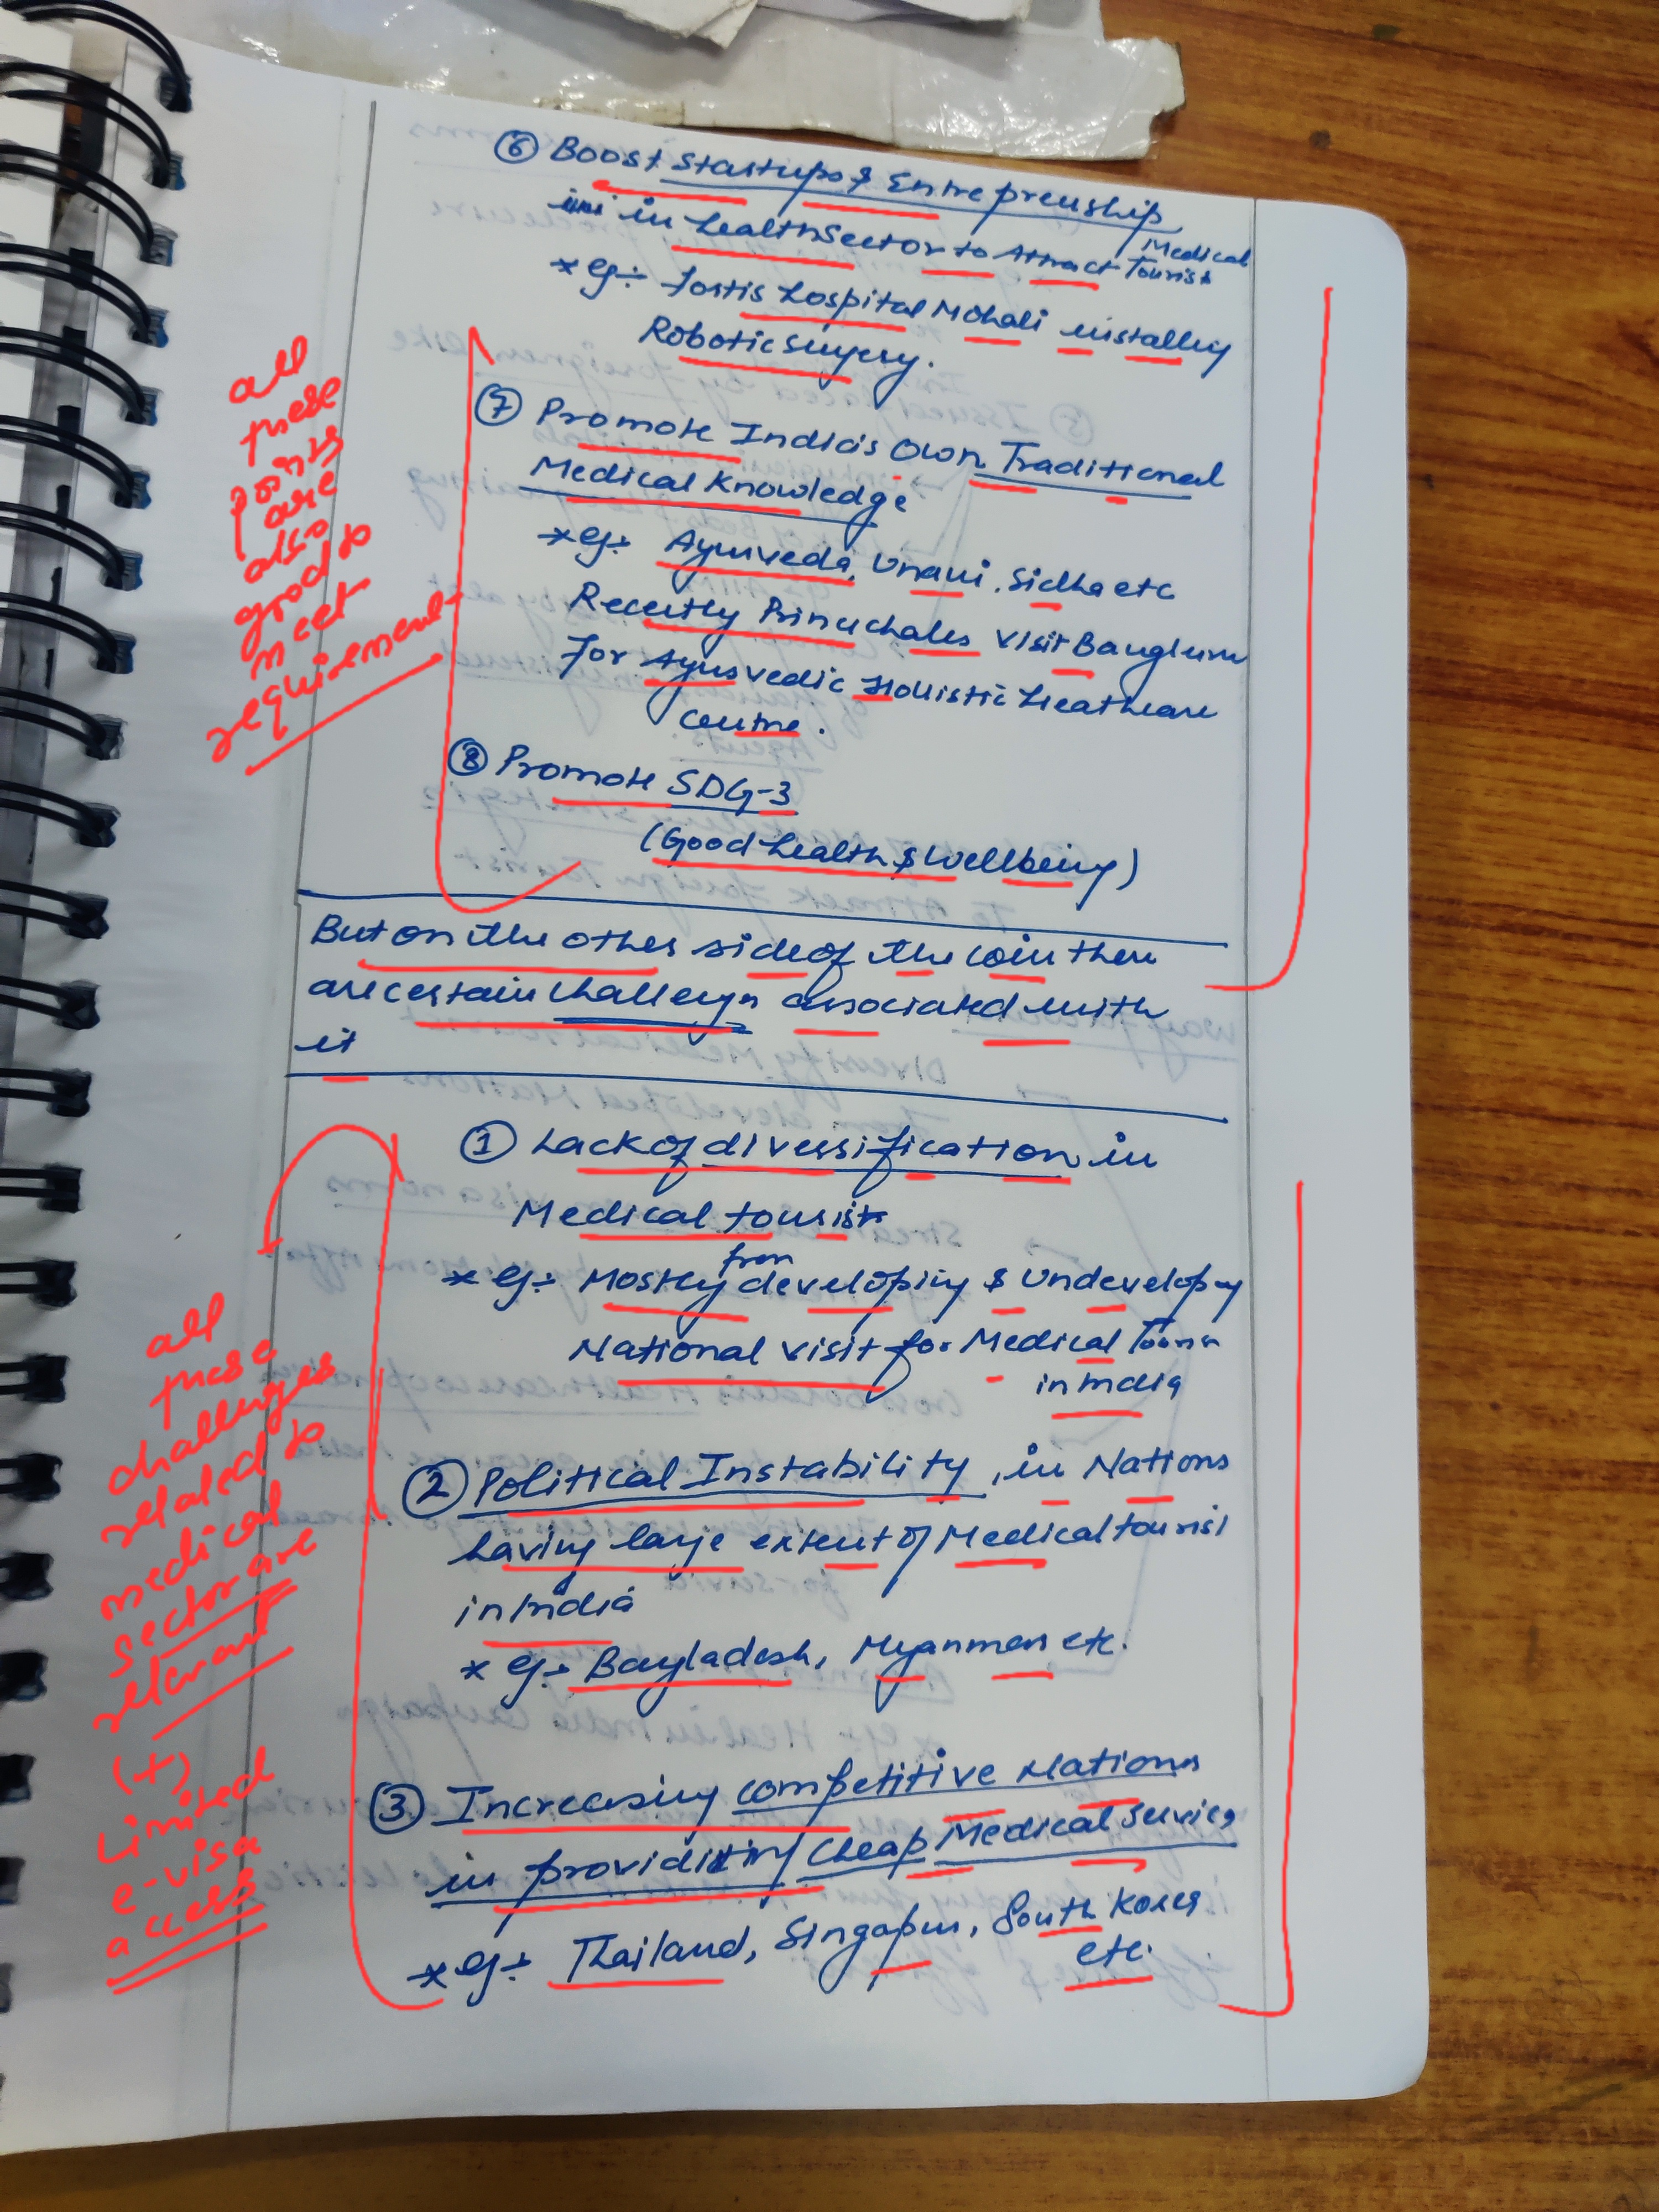 ⑥ Boost startups & Entreprenuship
in healthsector to Attract Medical Tourist
* eg:- Fortis hospital Mohali installing
Robotic surgery.
⑦ Promote India's Own Traditional
Medical Knowledge
* eg:- Ayurveda, Unani, Sidha etc
Recently Prince Charles visit Banglur
for Ayurvedic Holistic heathcare
Centre.
⑧ Promote SDG-3
(Good health & wellbeing)
all
these
points
are
also
good to
meet
requirement
But on the other side of the coin there
are certain challenges associated with
it
① Lack of diversification in
Medical tourists
* eg:- Mostly from developing & Undeveloping
National visit for Medical Tourism
in India
② Political Instability, in Nations
having large extent of Medical tourist
in India
* eg:- Bangladesh, Myanmar etc.
③ Increasing competitive Nations
in providing Cheap Medical Services
* eg:- Thailand, Singapur, South Korea
etc.
all
these
challenges
related to
medical
sector are
relevant
(+)
Limited
e-visa
access